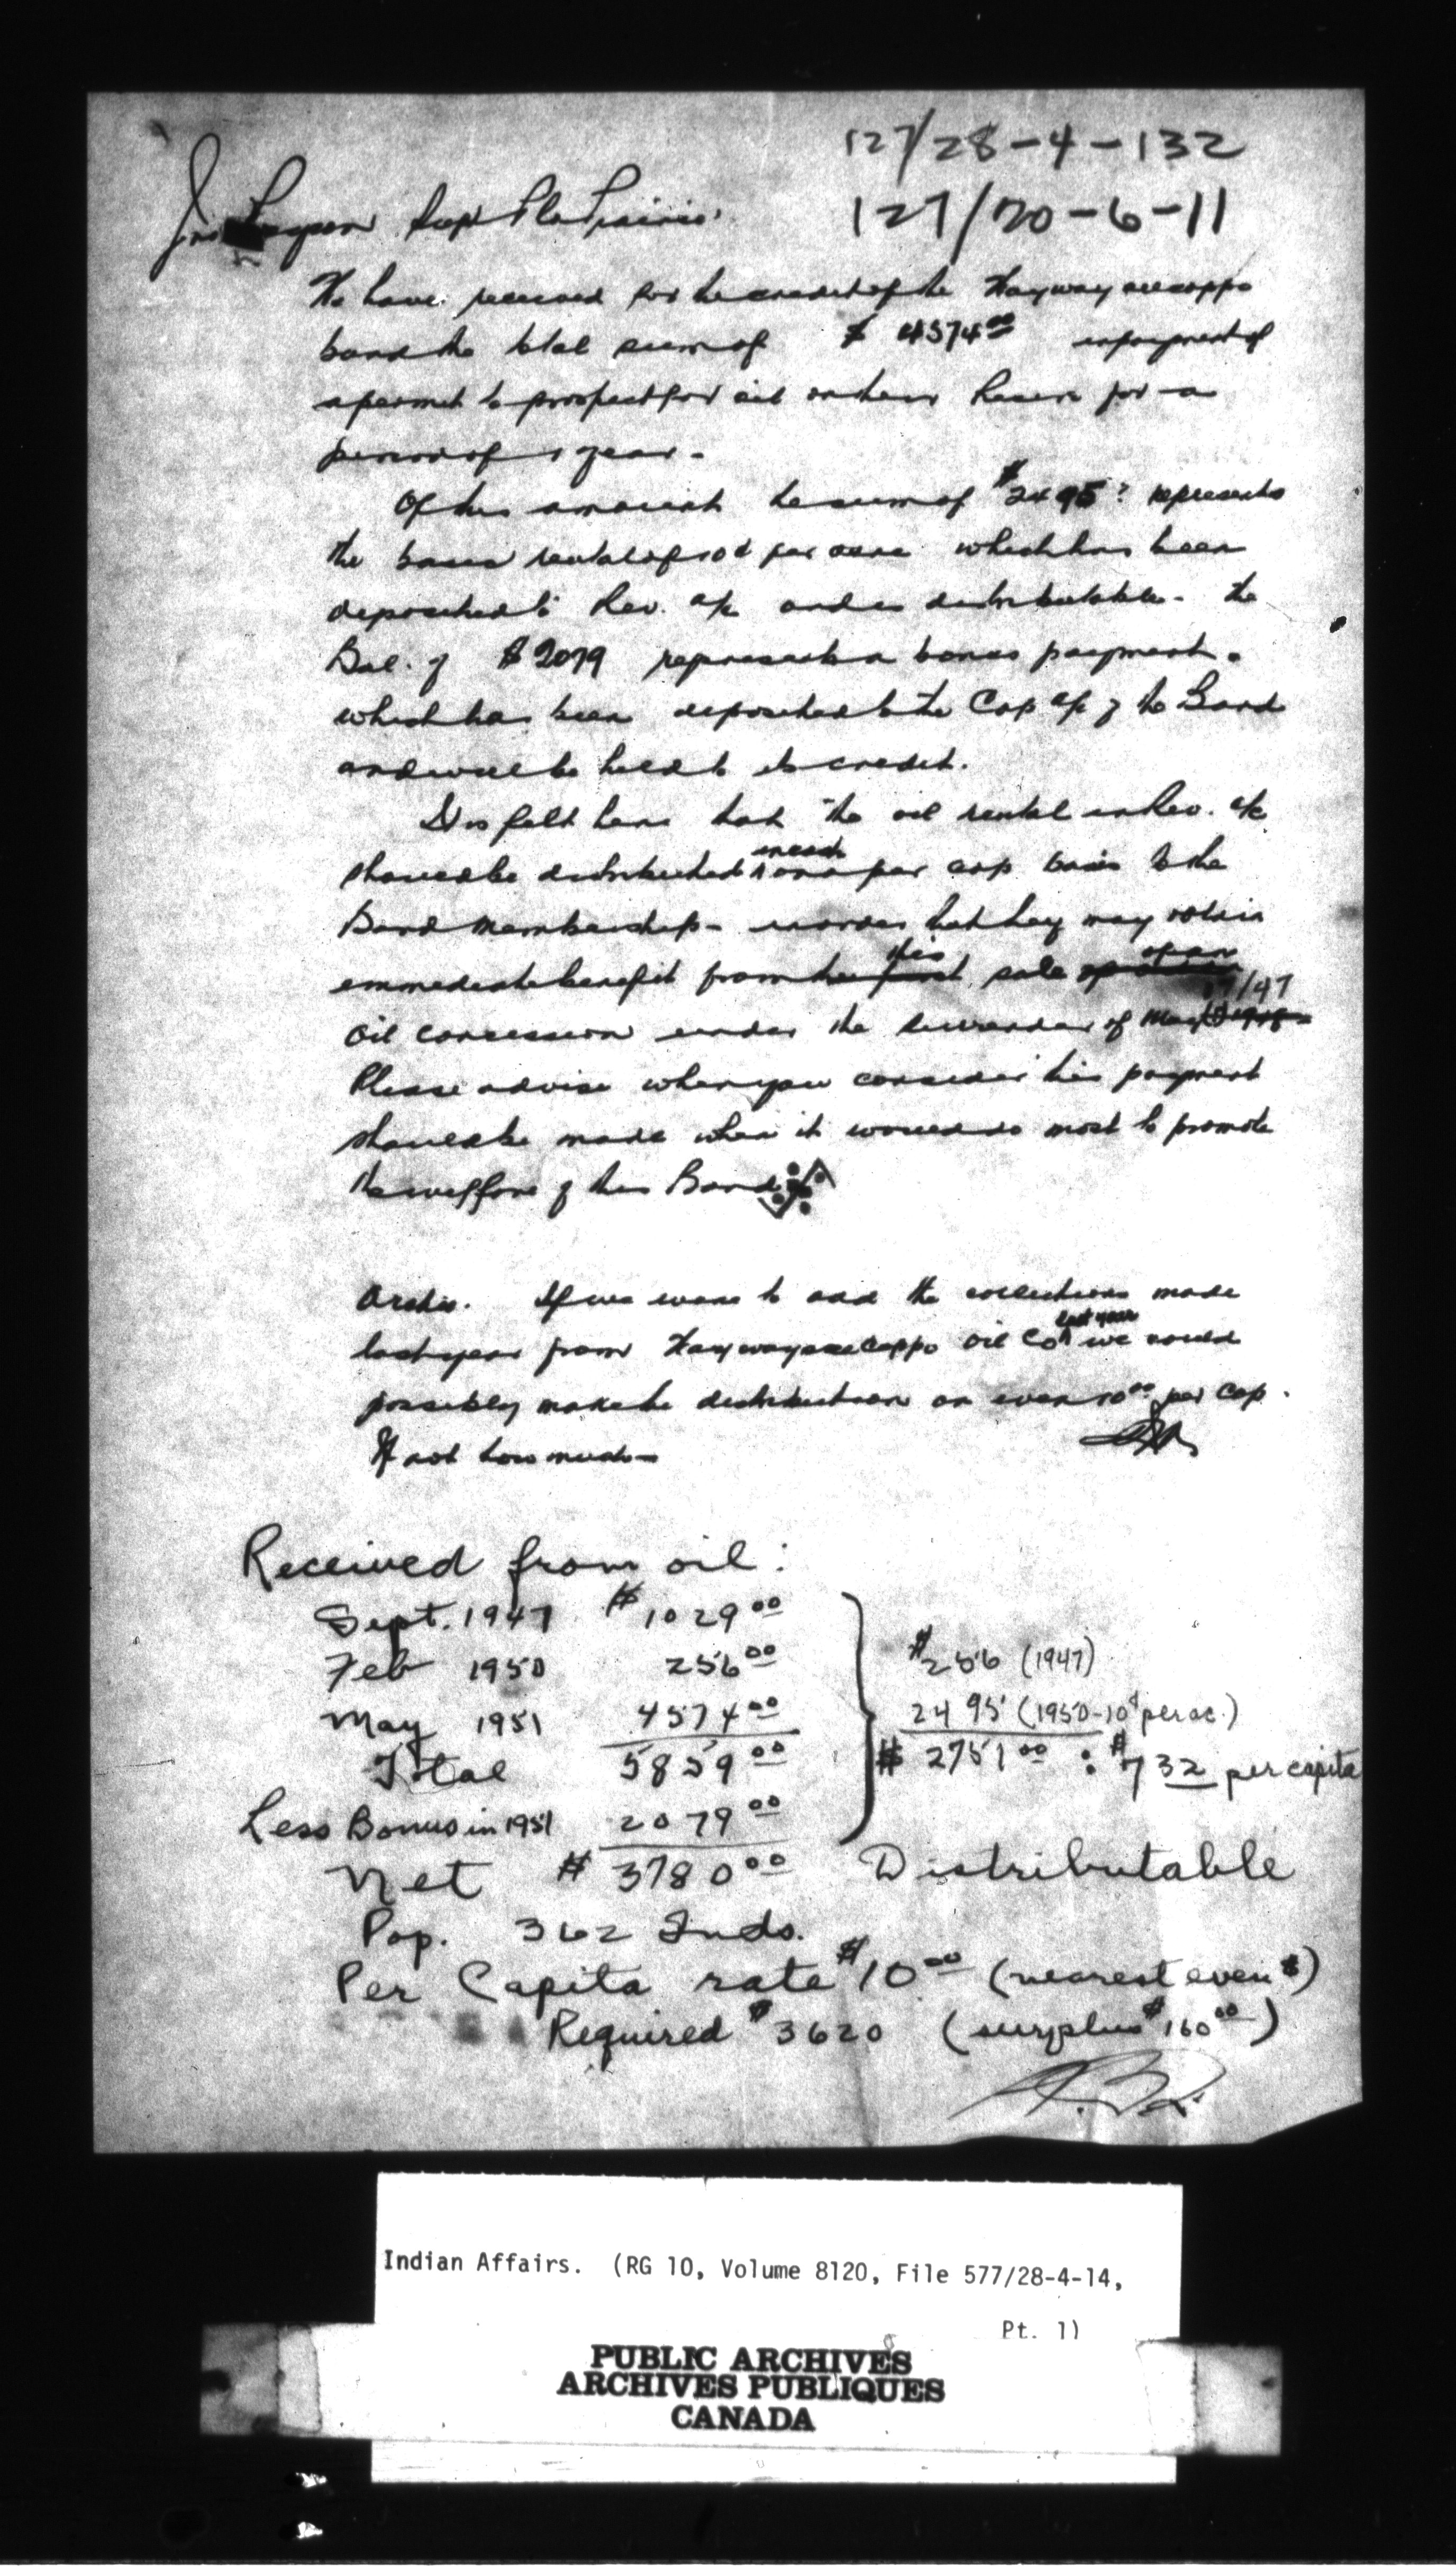 127/28-4-132
127/20-6-11
Supt Pla Prairie
We have received for the credit of the Waywayseecappo
band the total sum of $ 4574.00 in payment of
a permit to prospect for oil on their Reserve for a
period of 1 year -
Of this amount the sum of $2495 represents
the basic rental of 10¢ per acre which has been
deposited to Rev. a/c and is distributable - the
Bal. of $2079 represents a bonus payment.
which has been deposited to the Cap a/c of the Band
and will be held to its credit.
It is felt here that the oil rental in Rev. a/c
should be distributed in cash on a per cap basis to the
Band membership - in order that they may obtain
immediate benefit from this sale of an
oil concession under the surrender of 17/47
Please advise when you consider this payment
should be made when it would do most to promote
the welfare of this Band
Archie. If we were to add the collections made
last year from Waywayseecappo Oil Co last year we could
possibly make the distribution an even 10.00 per cap.
If not how much -
Received from oil:
Sept. 1947 $1029.00
Feb 1950 256.00
May 1951 4574.00
Total 5859.00
Less Bonus in 1951 2079.00
Net $ 3780.00 Distributable
$256 (1947)
2495 (1950-10¢ per ac.)
$ 2751.00 : $7 32 per capita
Pop. 362 Inds.
Per Capita rate $10.00 (nearest even $)
Required $3620 (surplus $160.00)
Indian Affairs. (RG 10, Volume 8120, File 577/28-4-14,
Pt. 1)
PUBLIC ARCHIVES
ARCHIVES PUBLIQUES
CANADA